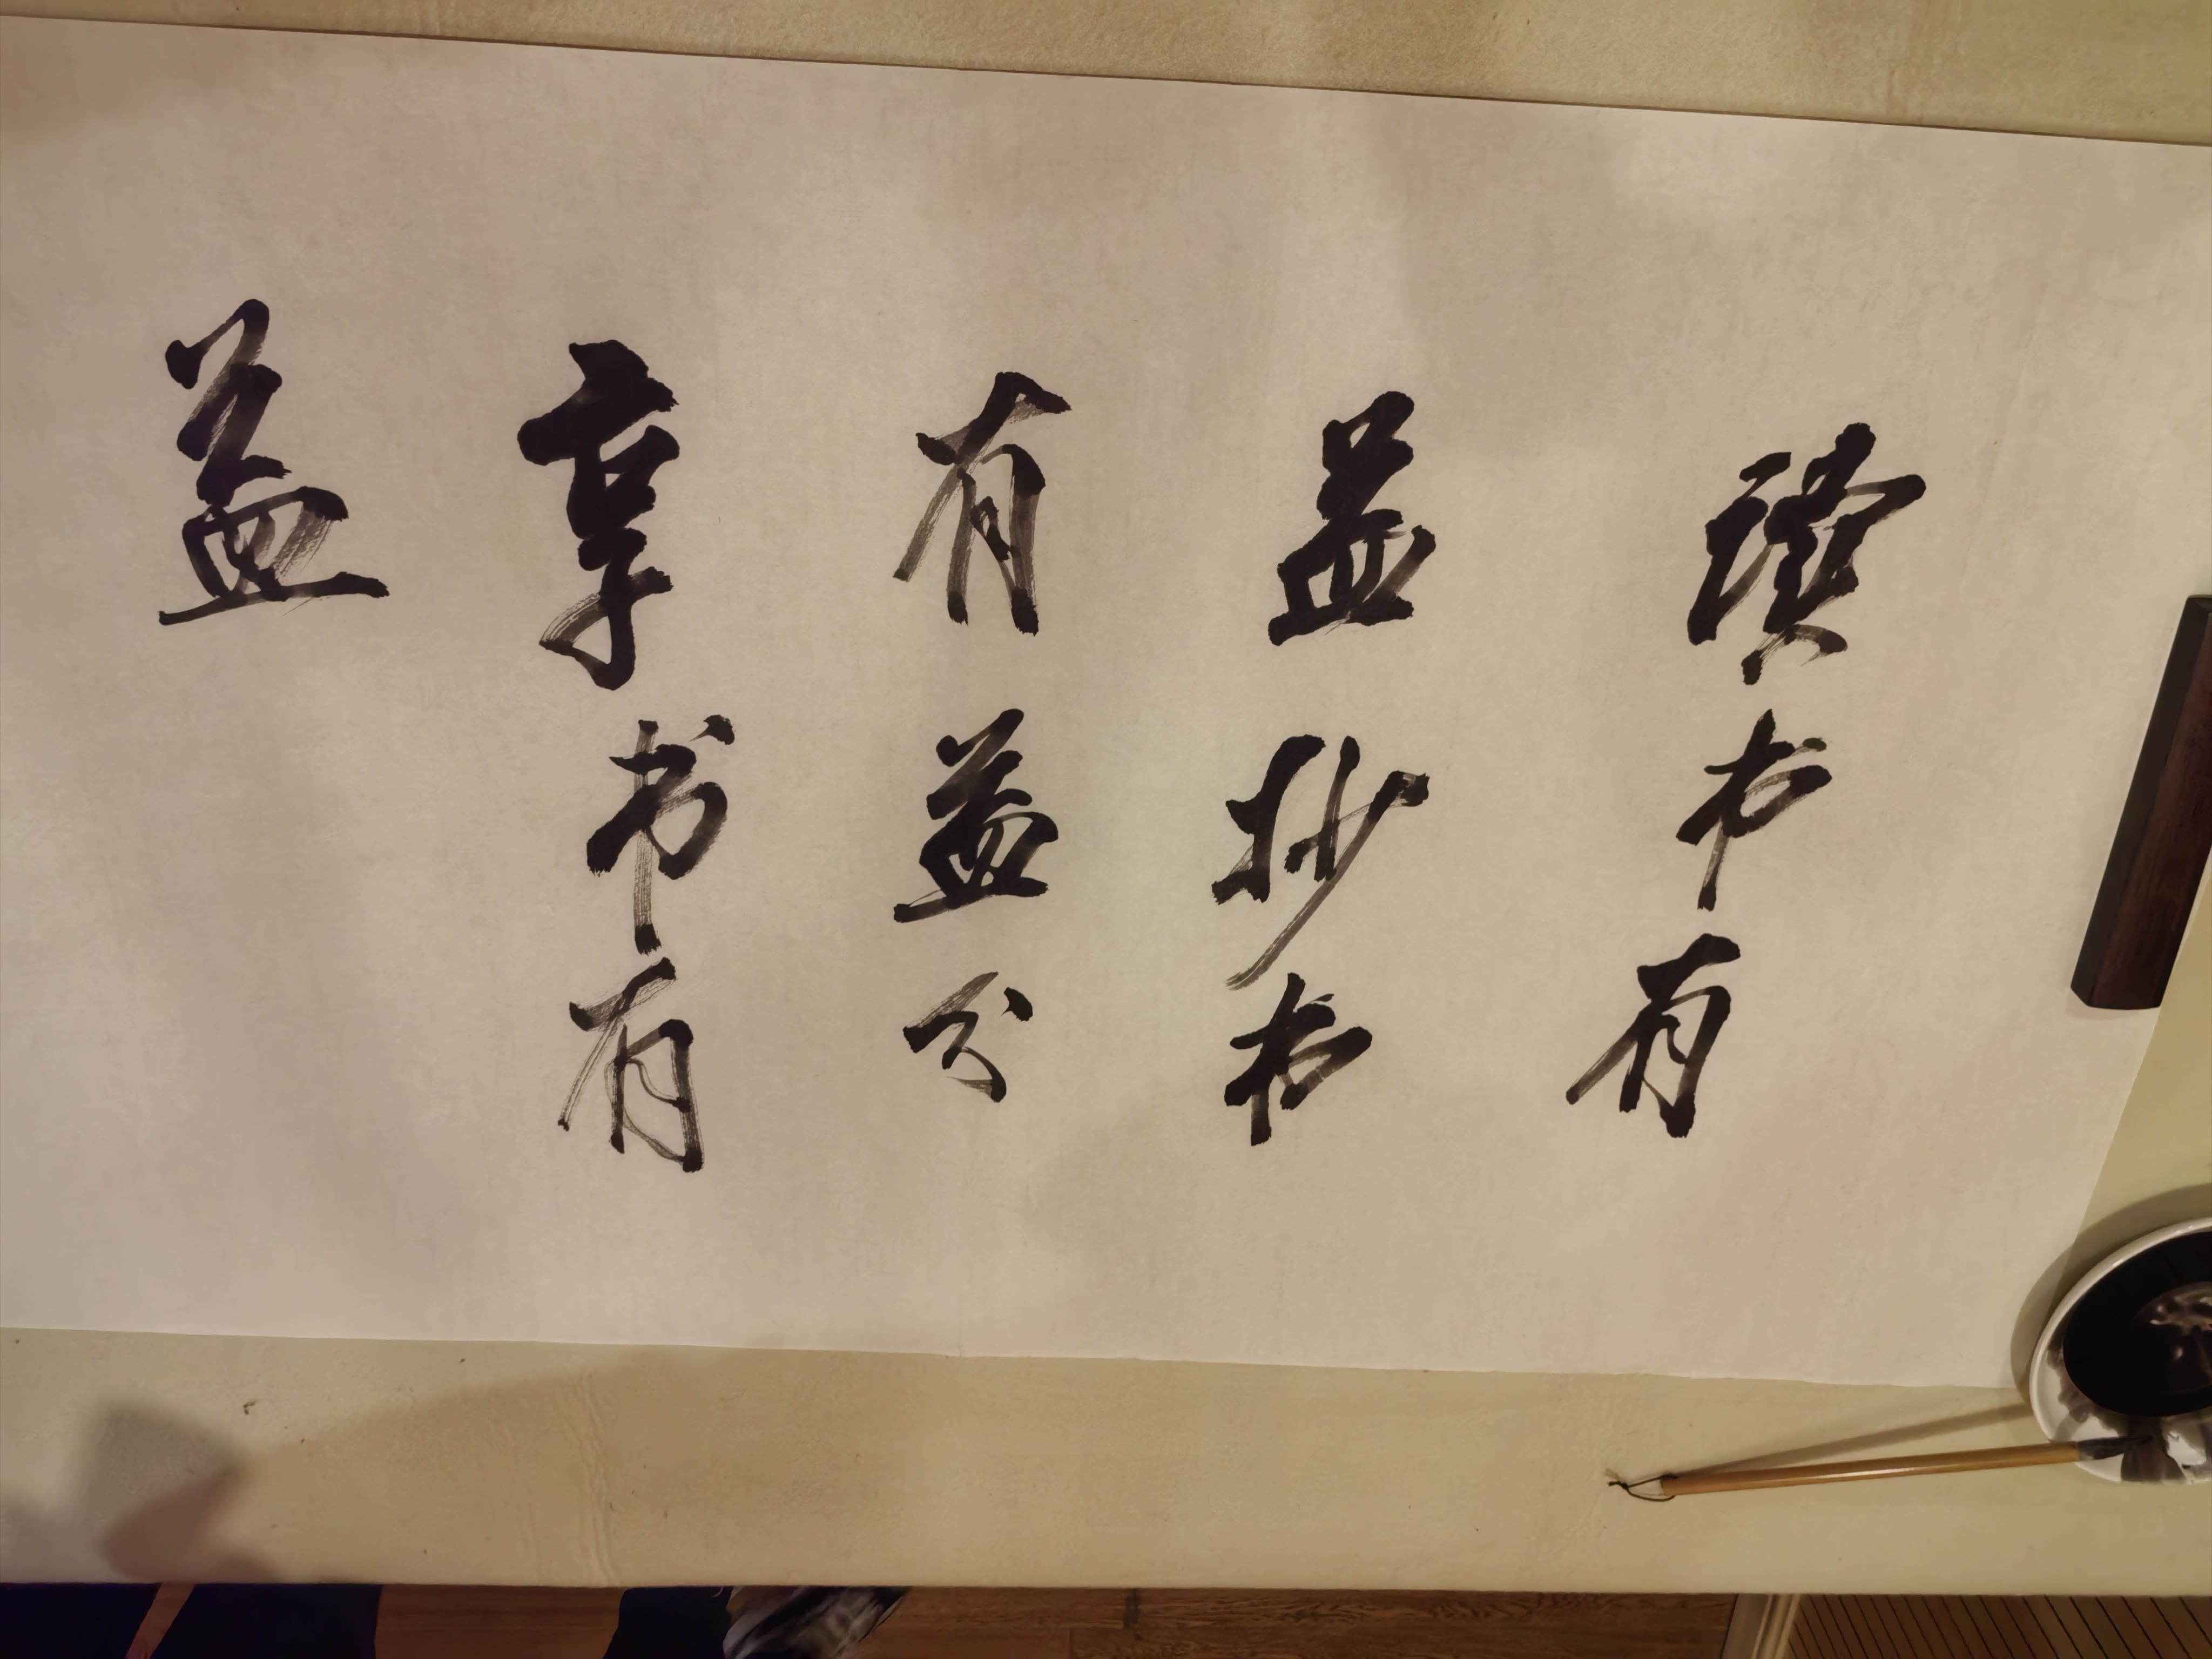 讀书有
益抄书
有益分
享书有
益